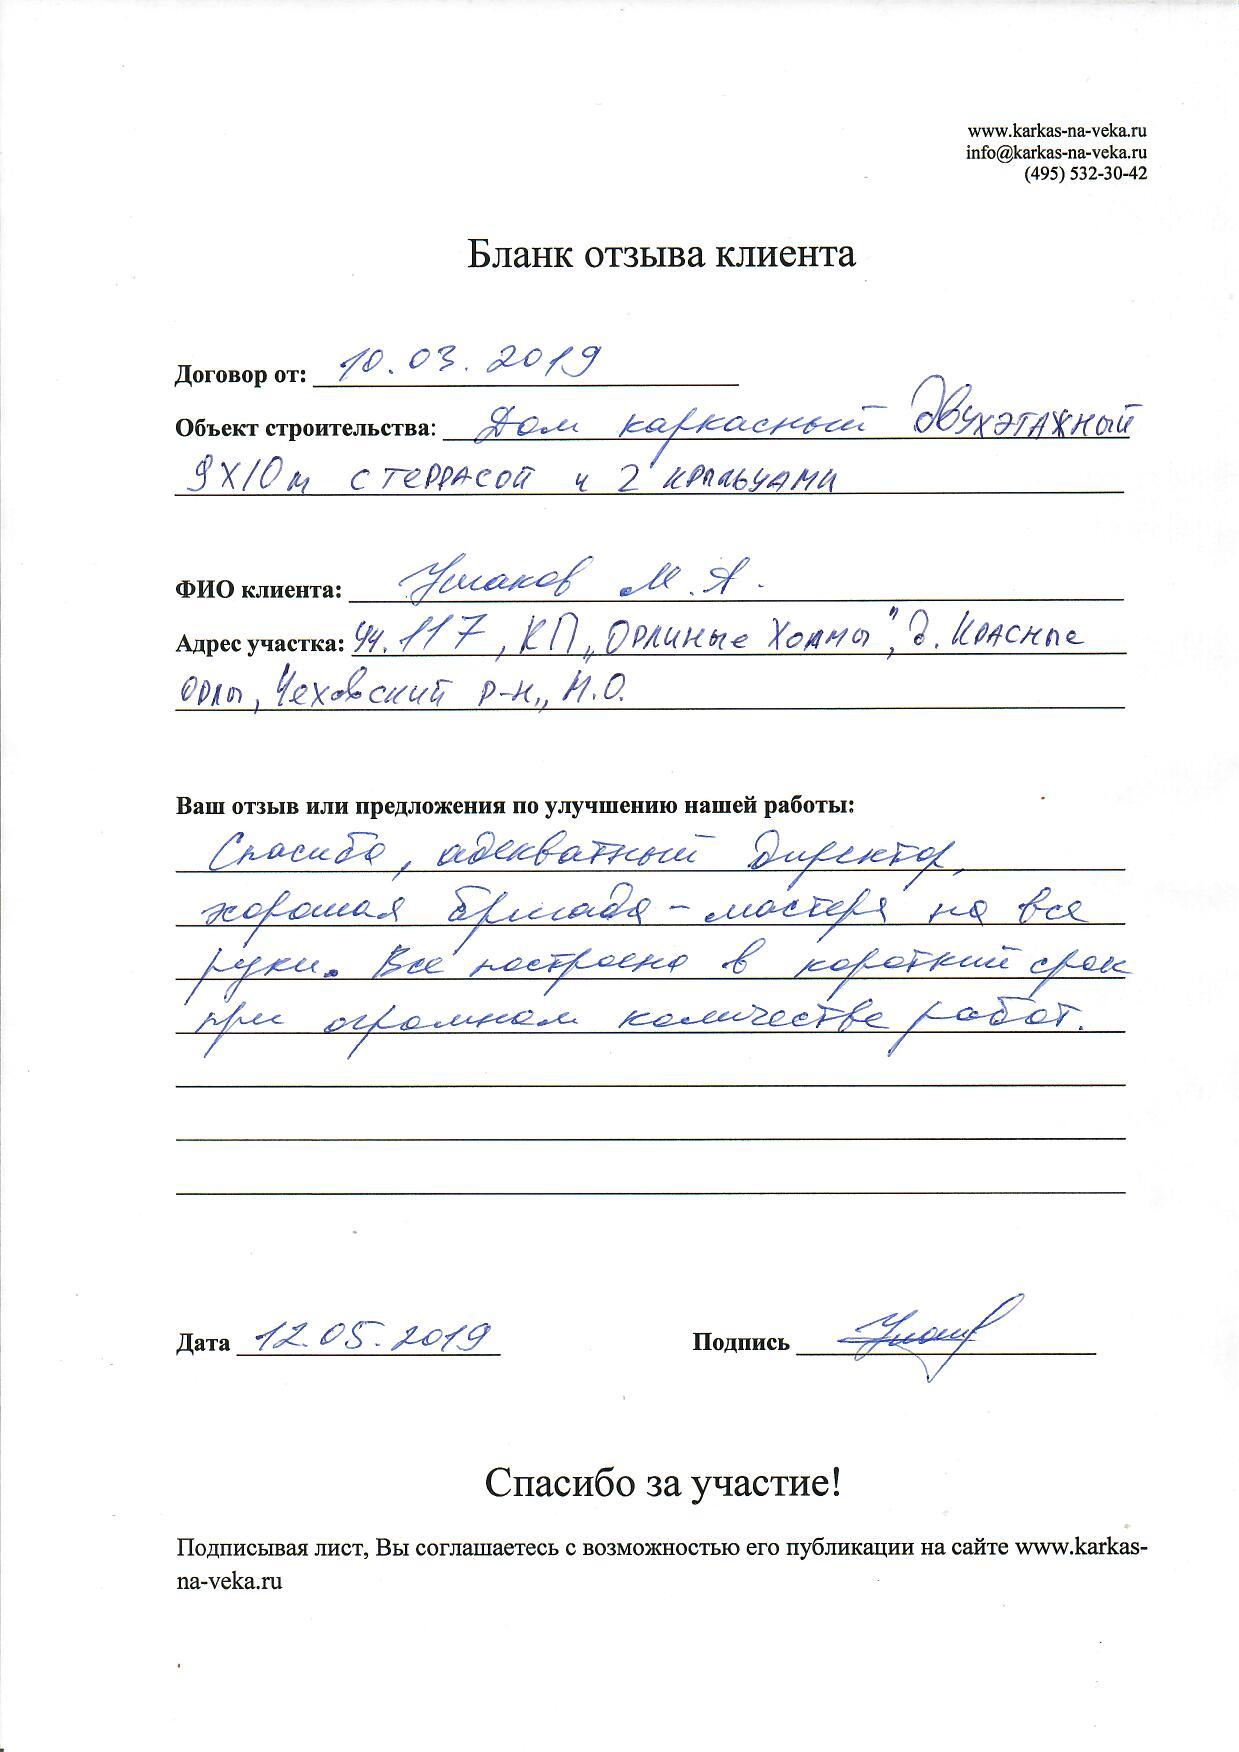 www.karkas-na-veka.ru
info@karkas-na-veka.ru
(495) 532-30-42
Бланк отзыва клиента
Договор от: 10.03.2019
Объект строительства: Дом каркасный двухэтажный
9х10м с террасой и 2 крыльцами
ФИО клиента: Ушаков М.А.
Адрес участка: уч. 117, КП „Орлиные Холмы", д. Красные
Орлы, Чеховский р-н., М.О.
Ваш отзыв или предложения по улучшению нашей работы:
Спасибо, адекватный директор,
хорошая бригада - мастера на все
руки. Все построено в короткий срок
при огромном количестве работ.
Дата 12.05.2019 Подпись
Спасибо за участие!
Подписывая лист, Вы соглашаетесь с возможностью его публикации на сайте www.karkas-
na-veka.ru